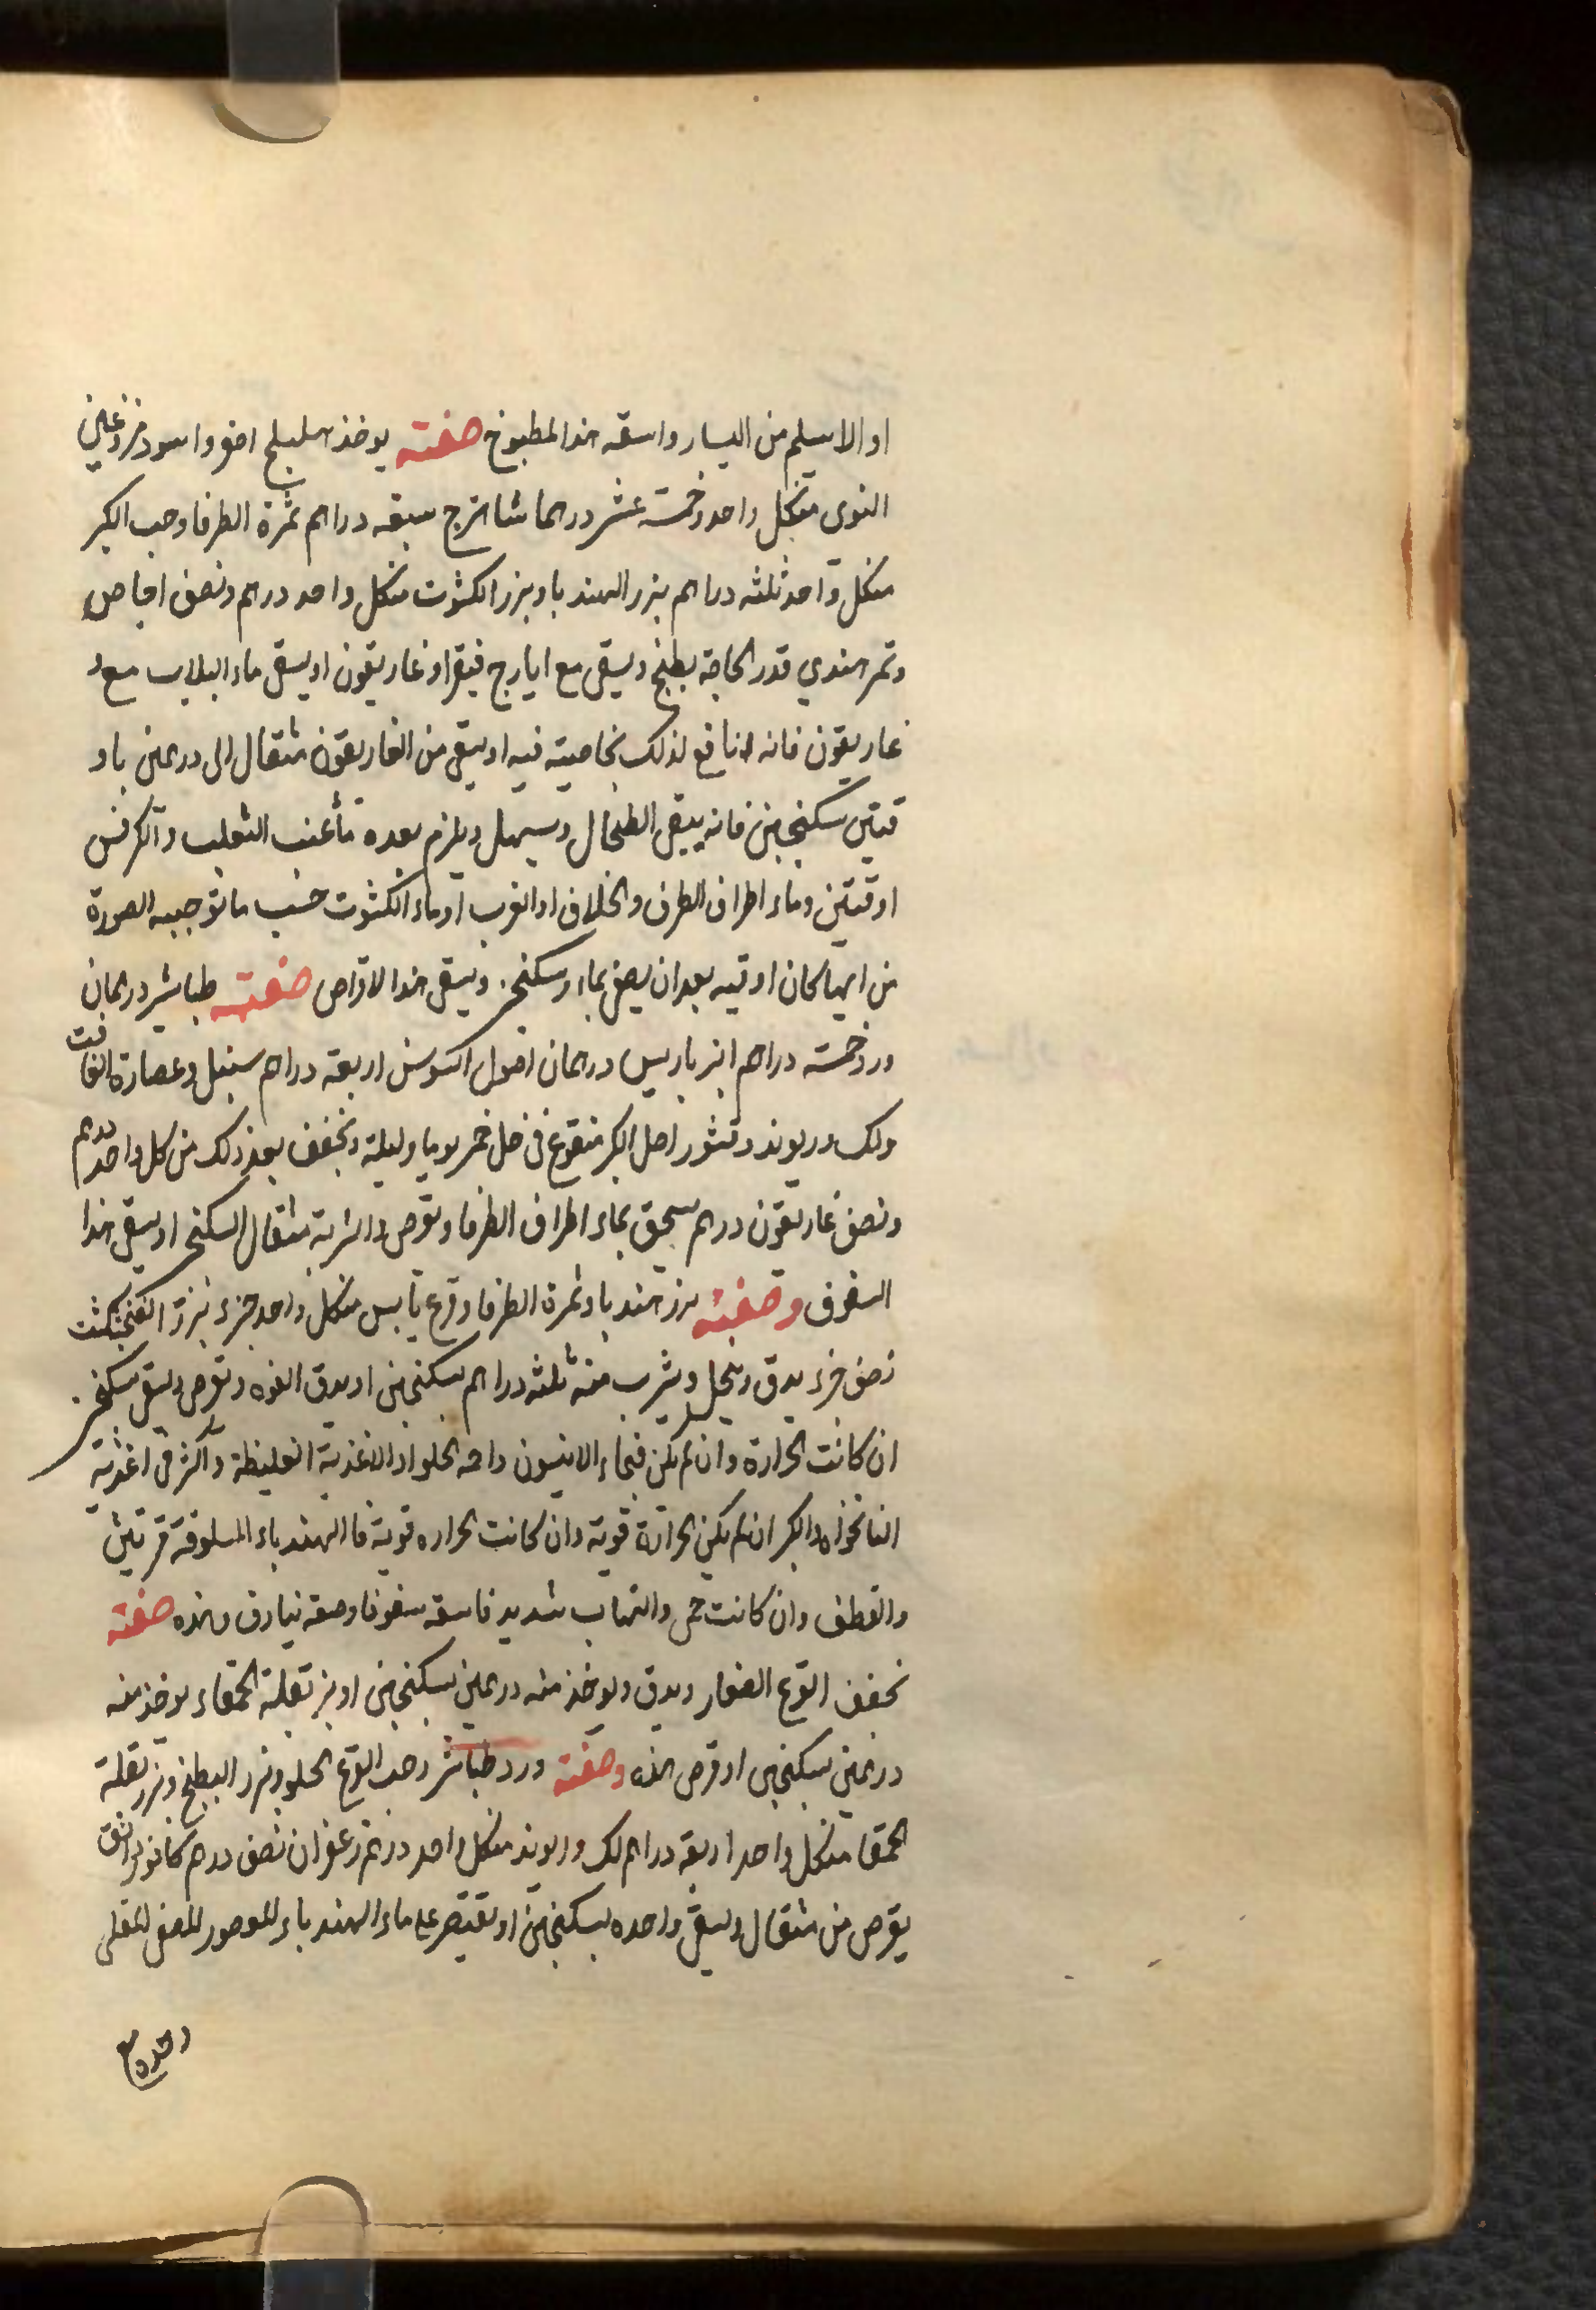 او الاسيلم من اليسار واسقه هذا المطبوخ صفته يوخذ هليلج اصفر واسود منزوعين
النوى من كل واحد خمسة عشر درهما شاهترج سبعه دراهم ثمرة الطرفا وحب الكبر
من كل واحد ثلثه دراهم بزر الهندبا وبزر الكشوت من كل واحد درهم ونصف اجاص
وتمر هندي قدر الحاجة يطبخ ويسقى مع ايارج فيقرا وغاريقون او يسقى ماء البلاب مع
غاريقون فانه نافع لذلك بخاصيته فيه او يسقى من الغاريقون مثقال الى درهمين باو
قيتين سكنجبين فانه ينقى الطحال ويسهل ويلزم بعده ماء عنب الثعلب والكرفس
اوقيتين وماء اطراف الطرفا والخلاف او الغرب او ماء الكشوت حسب ما توجبه الصورة
من ايها كان اوقيه بعد ان يصفى سكنجبين ويسقى هذا الاقراص صفته طباشير درهمان
ورد خمسة دراهم انبرباريس درهمان اصول السوس اربعة دراهم سنبل وعصارة الغافت
ولك وريوند وقشور اصل الكبر منقوع في خل خمر يوما وليلة ويجفف بعد ذلك من كل واحد درهم
ونصف غاريقون درهم يسحق بماء اطراف الطرفا ويقرص والشربة مثقال السكنجبين او يسقى هذا
السفوف وصفته بزر هندبا وثمرة الطرفا وقرع يابس من كل واحد جزء بزر الفنجنكشت
نصف جزء يدق وينخل ويشرب منه ثلثه دراهم بسكنجبين او يدق الفوه ويقرص ويسقى بسكنجبين
ان كانت الحرارة وان لم تكن فبماء الانيسون واحمه الحلو او الاغذية الغليظة واكثر في اغذيته
النانخواه والكبر ان لم يكن الحرارة قوية وان كانت الحراره قوية فا الهندباء المسلوقة مرتين
والقطف وان كانت حمى والتهاب شديد فاسقه سفوفا وصفه نيارق وهذه صفته
تجفف القرع الصغار ويدق ويوخذ منه درهمين بسكنجبين او بزر بقلة الحمقاء يوخذ منه
درهمين بسكنجبين او قرص هذه وصفته ورد طباشير وحب القرع الحلو وبزر البطيخ وبزر بقلة
الحمقا من كل واحد اربعة دراهم لك وريوند من كل واحد درهم زعفران نصف درهم كافور دانق
يقرص من مثقال ويسقى واحده بسكنجبين او يقتصر على ماء الهندباء المعصور المصفى المغلى
وحده مع